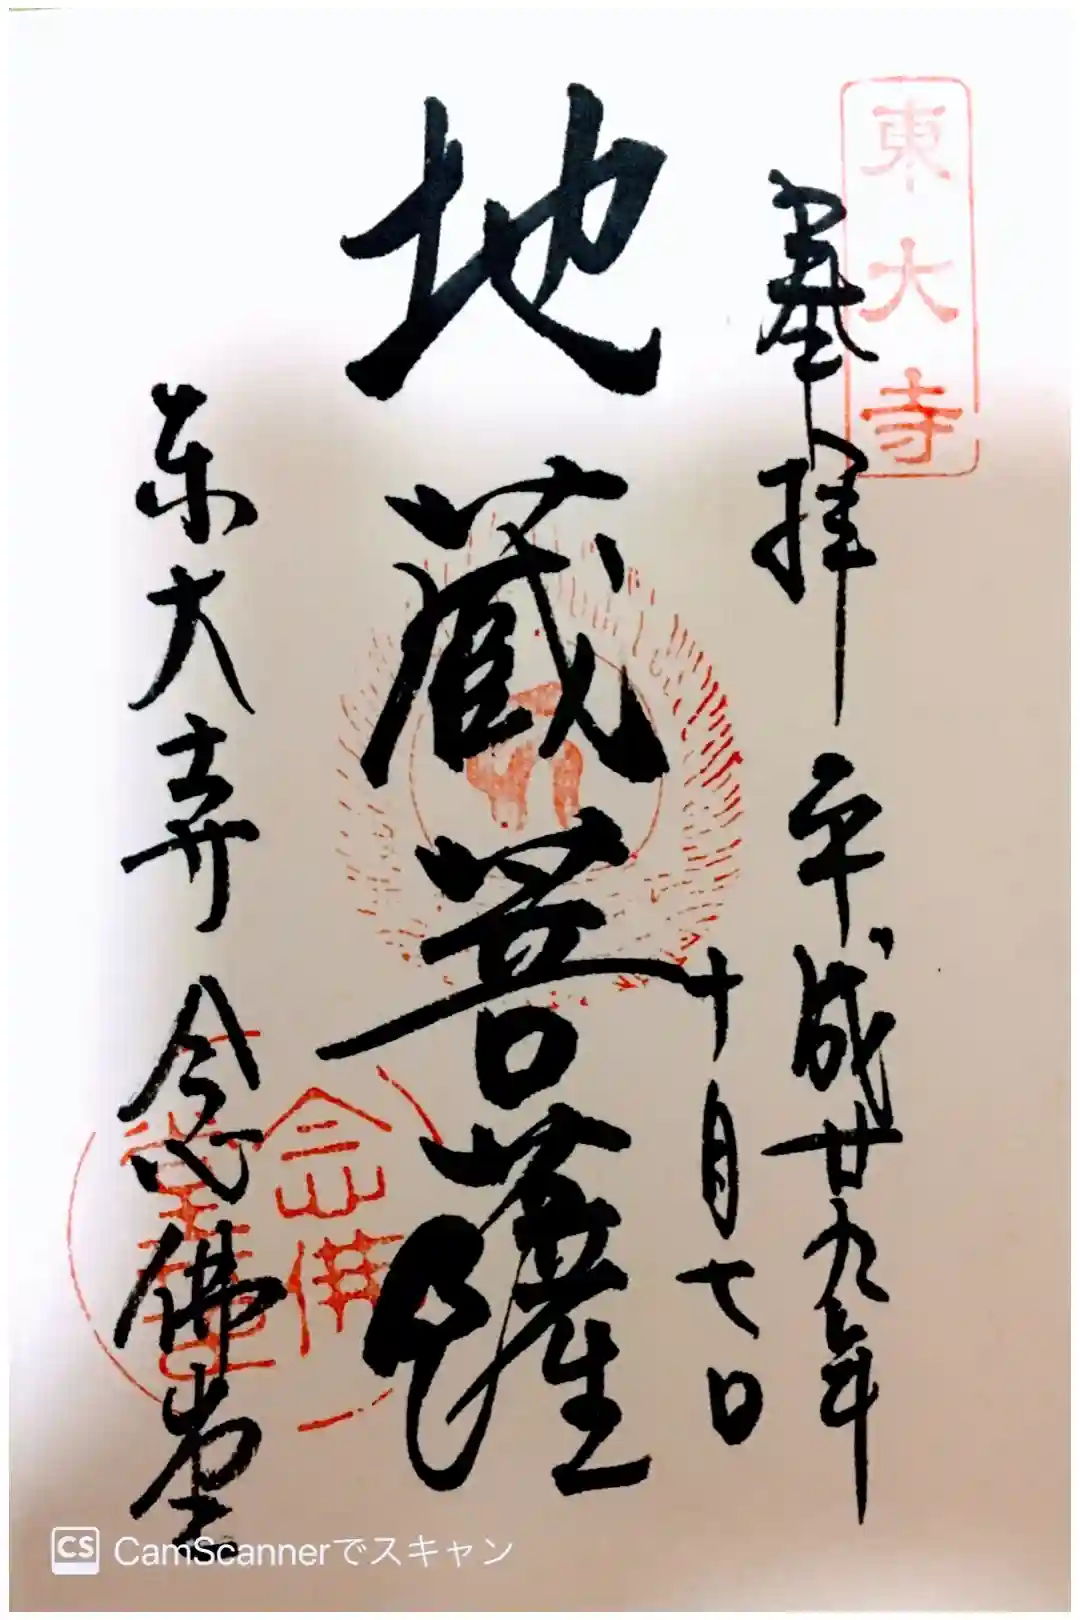 東大寺
拝 平成廿九年
十月七日
地蔵菩薩
東大寺 念佛堂
念佛
CamScannerでスキャン